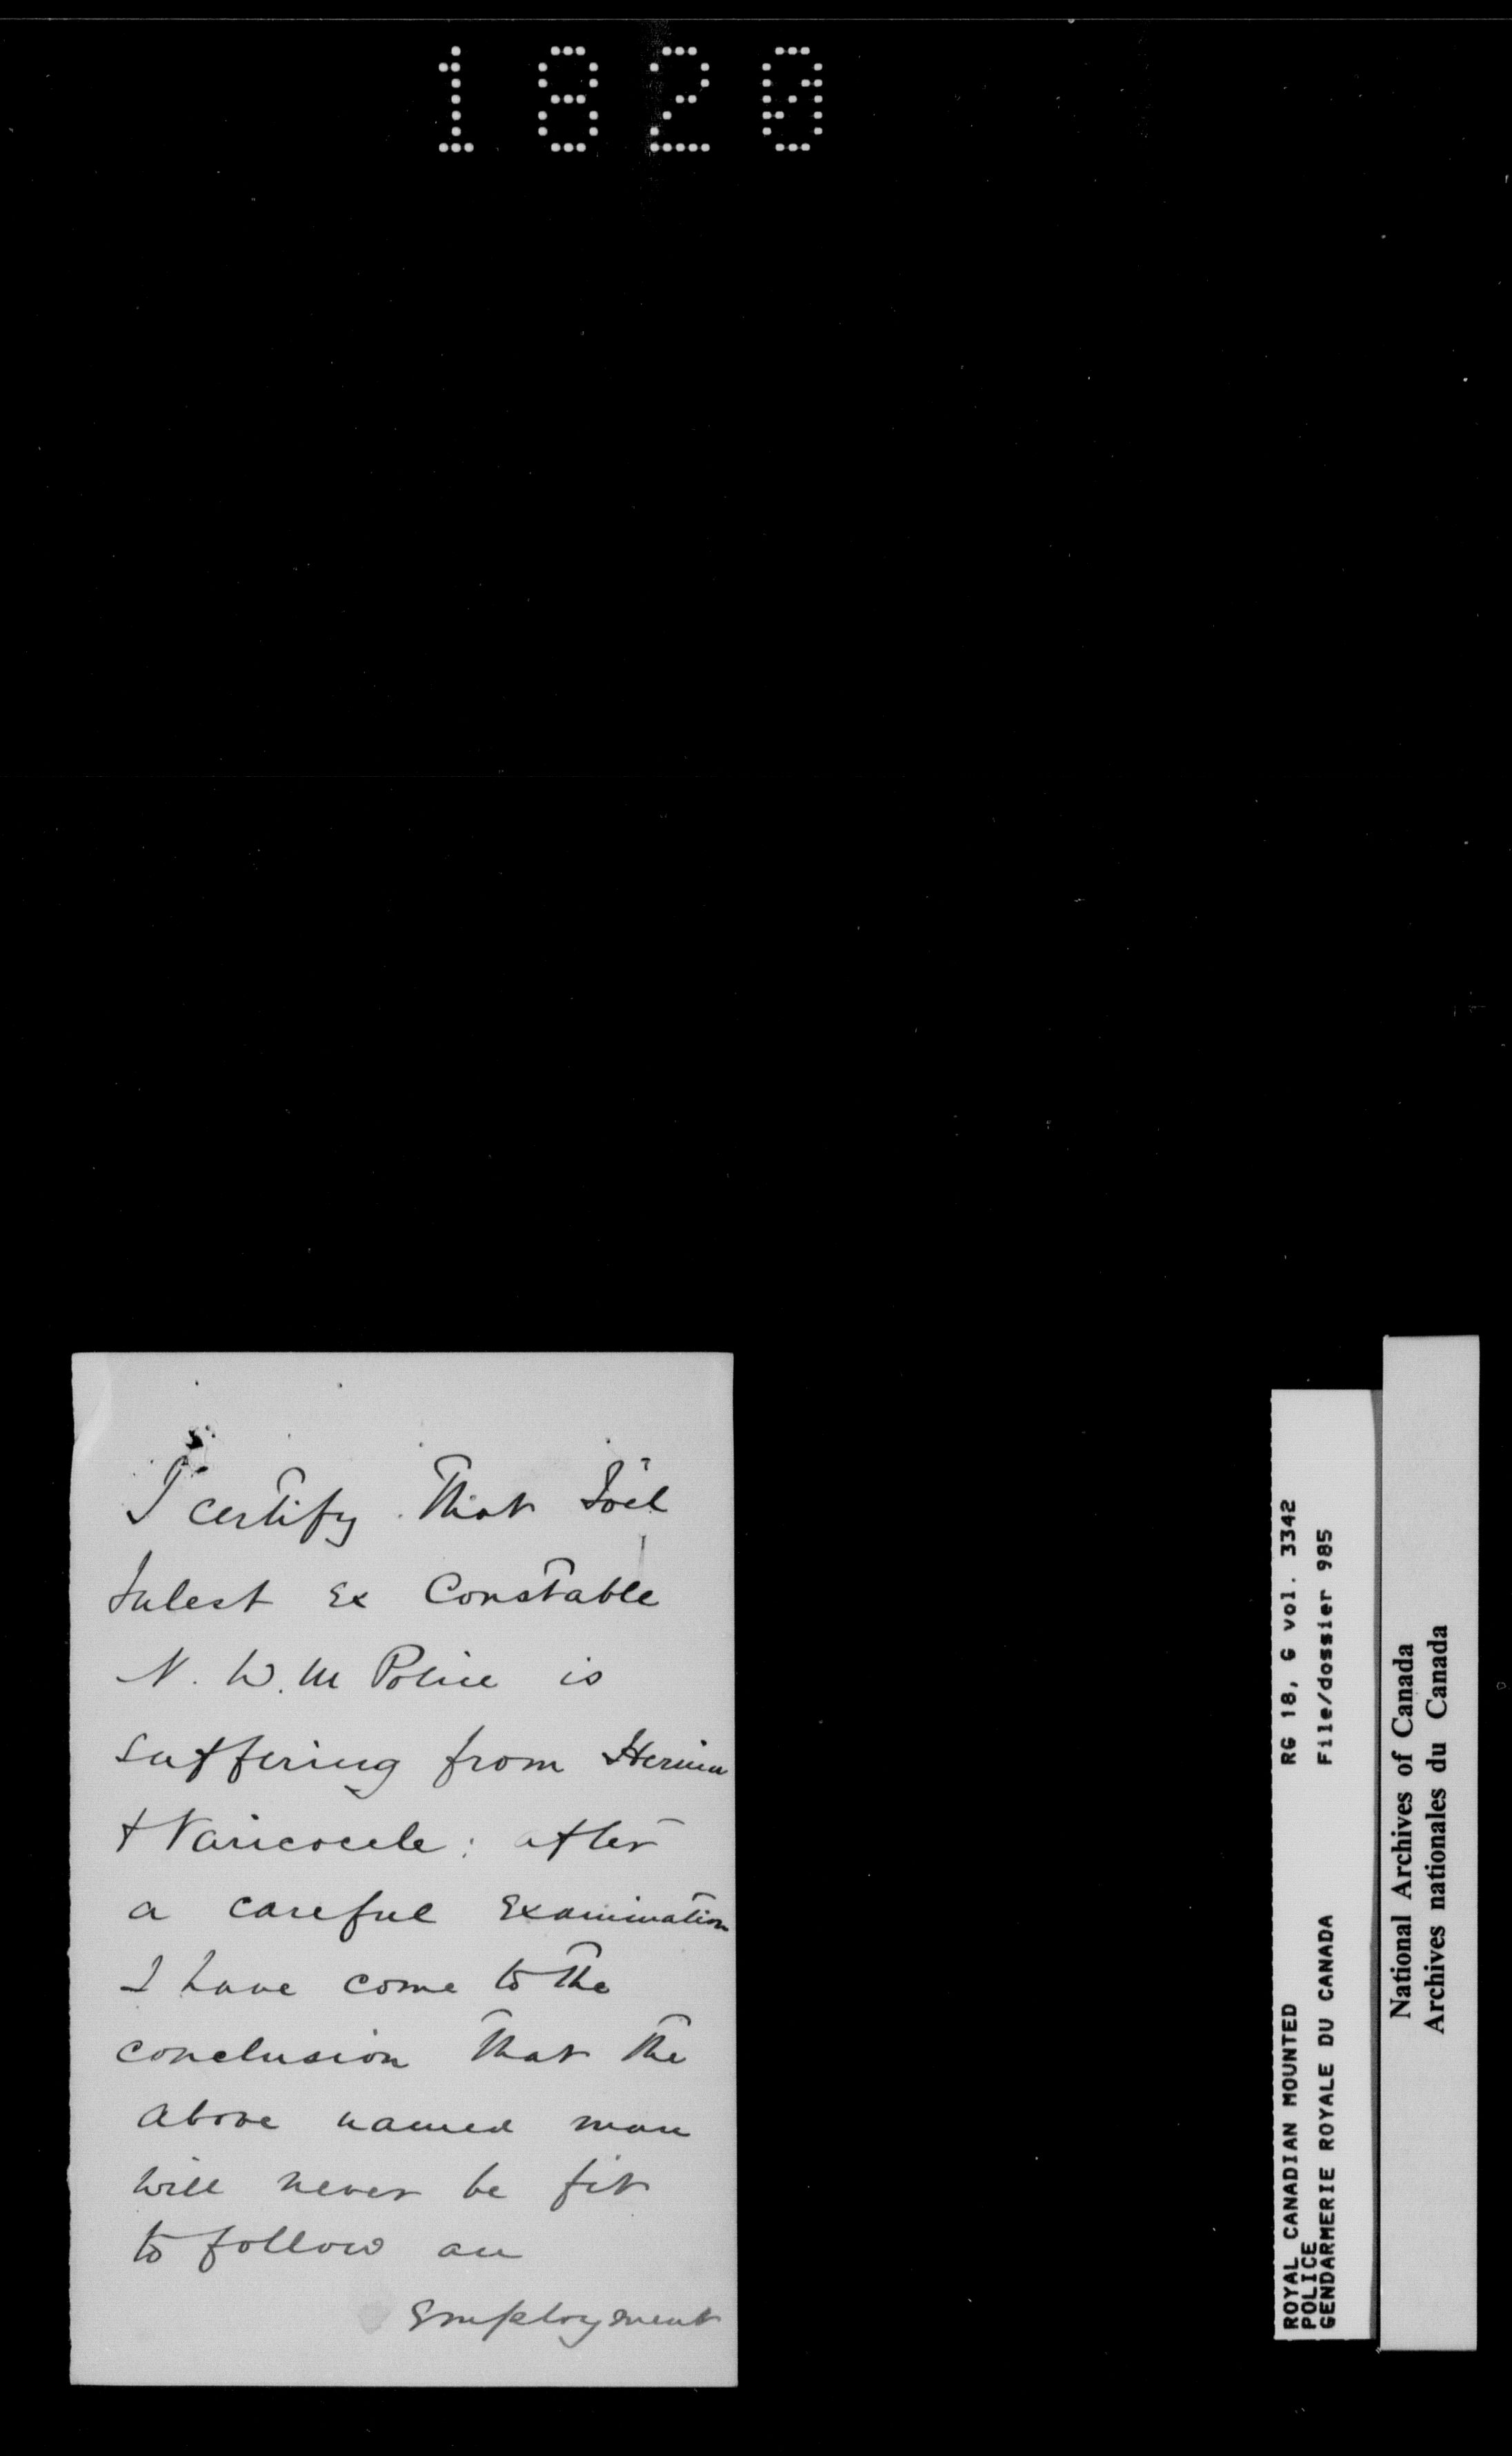 1820
I certify that Joël
Julest Ex Constable
N. W. M Police is
suffering from Hernia
+ Varicocele : after
a careful Examination
I have come to the
conclusion that the
above named man
will never be fit
to follow an
Employment
ROYAL CANADIAN MOUNTED RG 18, G vol. 3342
POLICE
GENDARMERIE ROYALE DU CANADA File/dossier 985
National Archives of Canada
Archives nationales du Canada